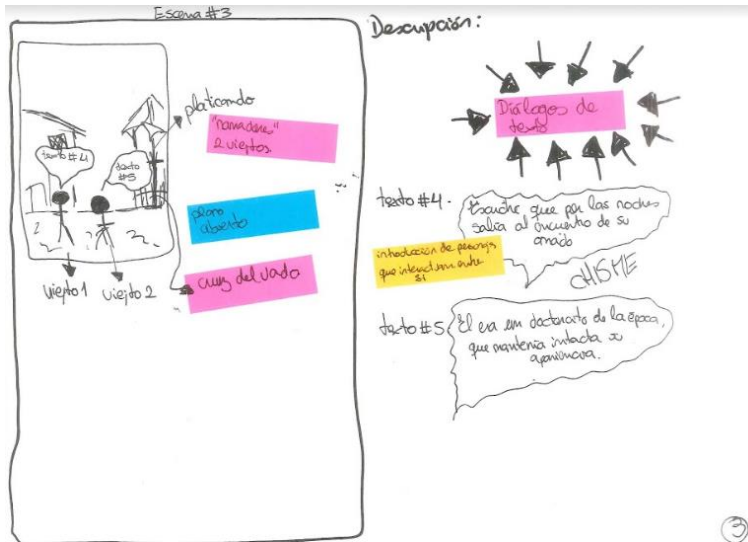 Escena #3
texto #4
texto #5
platicando
"narradores"
2 viejitos.
plano
abierto
cruz del vado
viejito 1
viejito 2
Descripción:
Diálogos de
texto
texto #4.
Escuche que por las noches
salía al encuentro de su
amado
introducción de personajes
que interactuan entre
si
CHISME
texto #5
El era un doctorcito de la época,
que mantenía intacta su
apariencia.
3